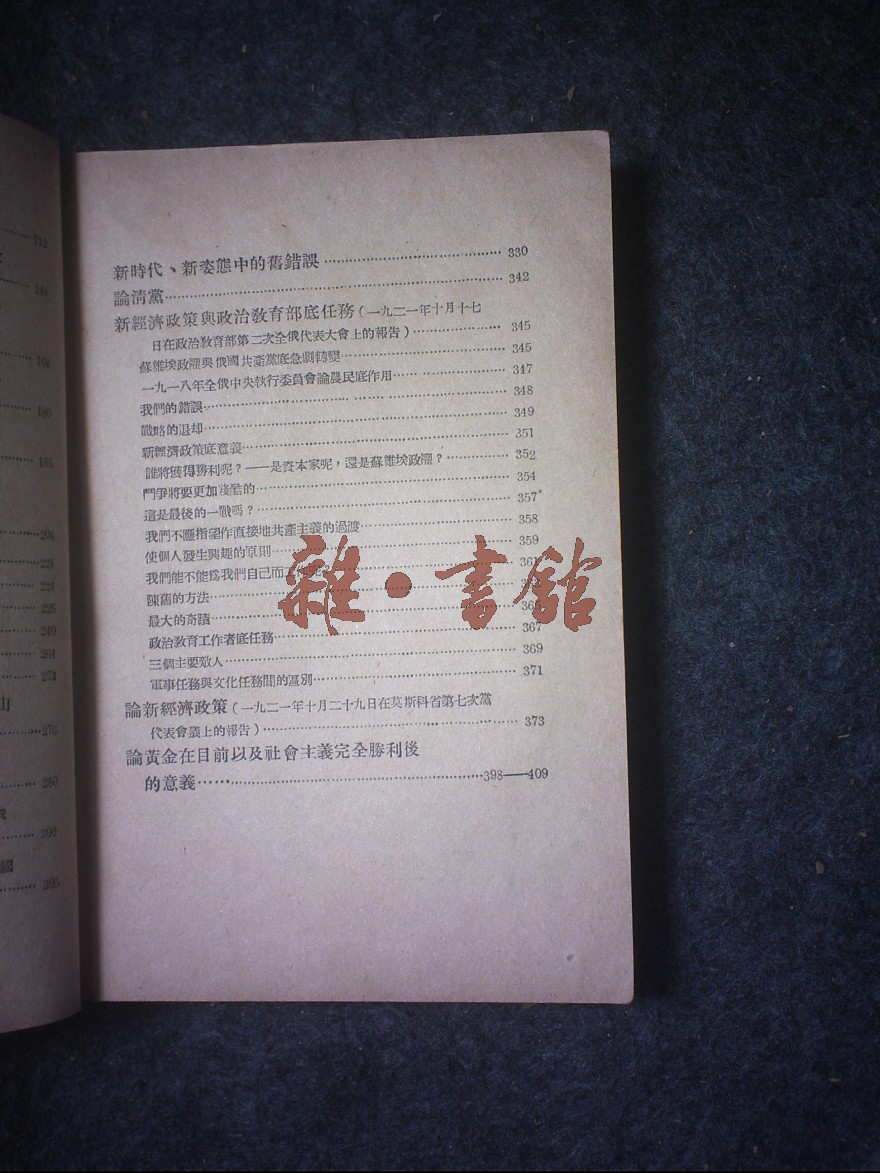 新時代、新姿態中的舊錯誤 330
論清黨 342
新經濟政策與政治敎育部底任務（一九二一年十月十七
日在政治敎育部第二次全俄代表大會上的報告） 345
蘇維埃政權與俄國共產黨底急劇轉變 345
一九一八年全俄中央執行委員會論農民底作用 347
我們的錯誤 348
戰略的退却 349
新經濟政策底意義 351
誰將獲得勝利呢？——是資本家呢，還是蘇維埃政權？ 352
鬥爭將要更加殘酷的 354
這是最後的一戰嗎？ 357
我們不應指望作直接地共產主義的過渡 358
使個人發生興趣的原則 359
我們能不能爲我們自己而工
陳舊的方法
最大的奇蹟
政治敎育工作者底任務 367
三個主要敵人 369
軍事任務與文化任務間的區別 371
論新經濟政策（一九二一年十月二十九日在莫斯科省第七次黨
代表會議上的報告） 373
論黃金在目前以及社會主義完全勝利後
的意義 398——409
雜·書館
112
146
164
180
185
204
221
224
225
240
264
274
山
276
280
300
國
305